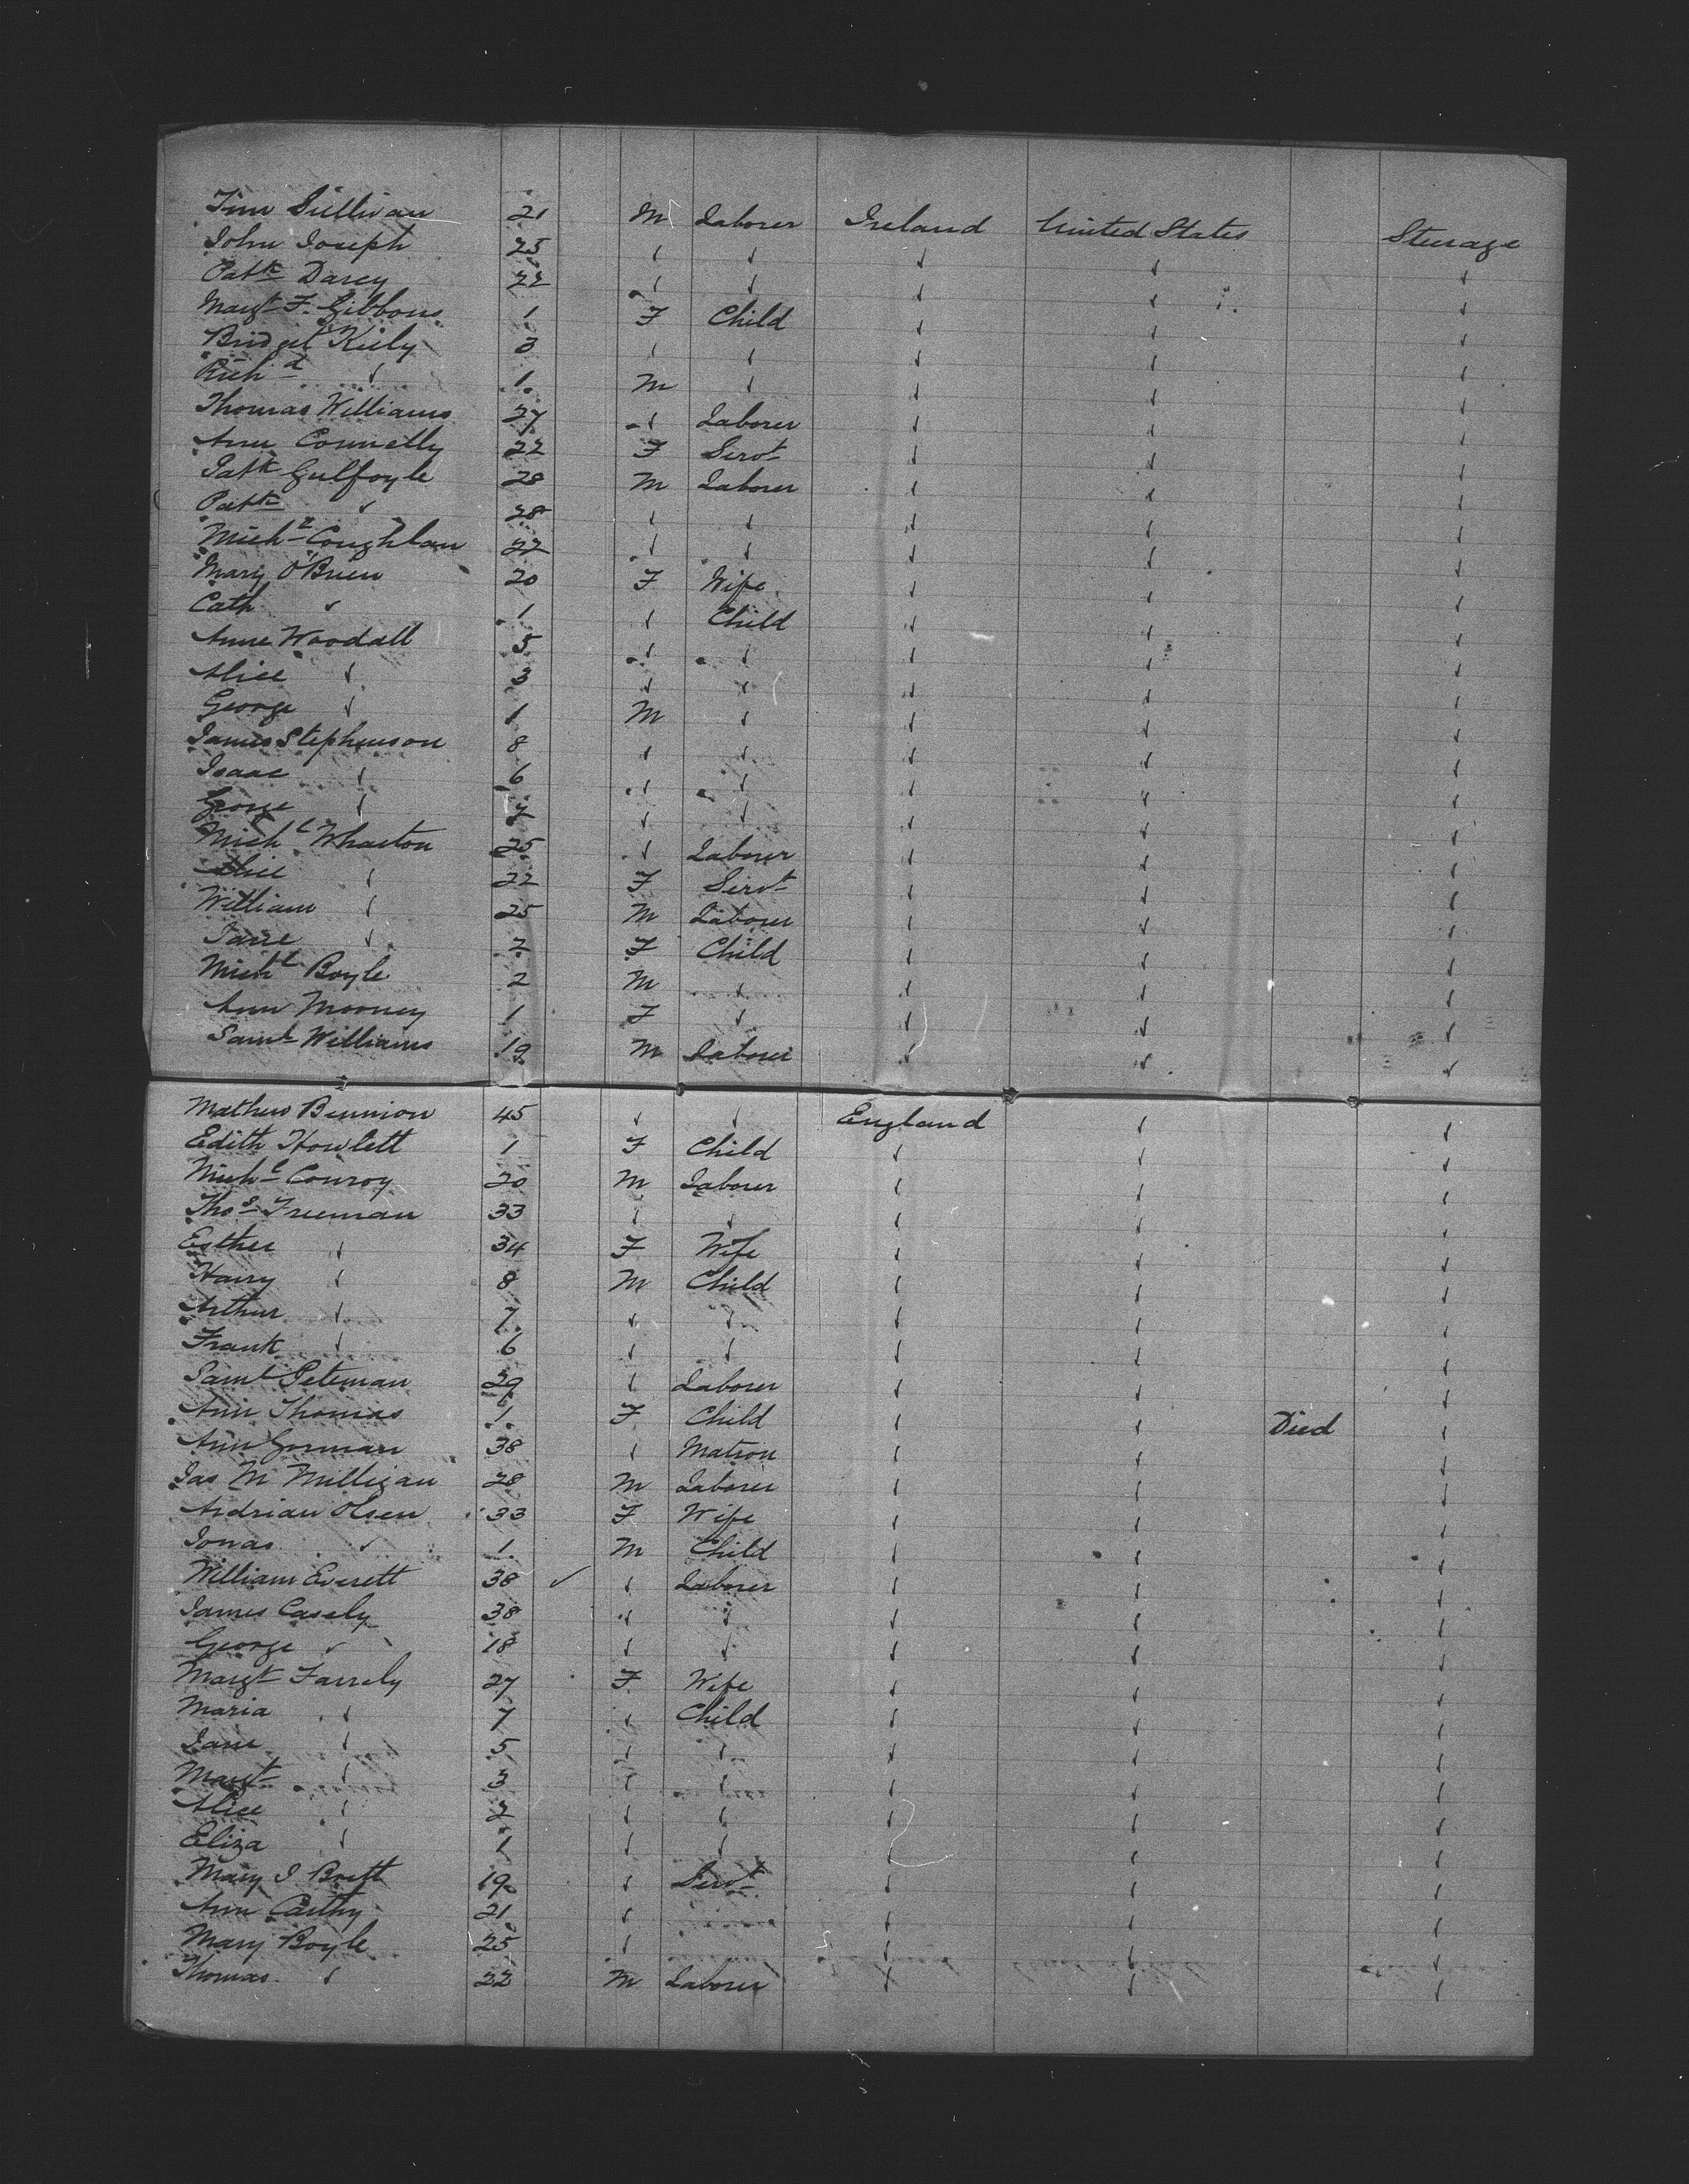 Tim Sullivan 21 M Laborer Ireland United States Steerage
John Joseph 25 " " " " "
Patk Darcy 22 " " " " "
Margt F. Gibbons 1 F Child " " "
Bridget Kiely 3 " " " " "
Richd " 1 M " " " "
Thomas Williams 27 " Laborer " " "
Ann Connelly 22 F Servt " " "
Patk Gulfoyle 28 M Laborer " " "
Patk " 28 " " " " "
Michl Coughlan 22 " " " " "
Mary O'Brien 20 F Wife " " "
Cath " 1 " Child " " "
Anne Woodall 5 " " " " "
Alice " 3 " " " " "
George " 1 M " " " "
James Stephenson 8 " " " " "
Isaac " 6 " " " " "
George " " " " " "
Michl Wharton 25 " Laborer " " "
Alice " 22 F Servt " " "
William " 25 M Laborer " " "
Jane " 2 F Child " " "
Michl Boyle 2 M " " " "
Ann Mooney 1 F " " " "
Saml Williams 19 M Laborer " " "
Mathew Bennion 45 " " England " "
Edith Howlett 1 F Child " " "
Michl Conroy 20 M Laborer " " "
Thos Freeman 33 " " " " "
Esther " 34 F Wife " " "
Harry " 8 M Child " " "
Arthur " 7 " " " " "
Frank " 6 " " " " "
Saml Peteman 29 " Laborer " " "
Ann Thomas 1 F Child " " Died "
Ann Gorman 38 " Matron " " "
Jas M Milligan 28 M Laborer " " "
Andrian Olsen 33 F Wife " " "
Jonas " 1 M Child " " "
William Everett 38 ✓ " Laborer " " "
James Casely 38 " " " " "
George " 18 " " " " "
Margt Farrely 27 F Wife " " "
Maria " 7 " Child " " "
Jane " 5 " " " " "
Margt " 3 " " " " "
Alice " 2 " " " " "
Eliza " 1 " " " " "
Mary J Brett 19 " Servt " " "
Ann Carthy 21 " " " "
Mary Boyle 25 " " " "
Thomas " 22 M Laborer " " "